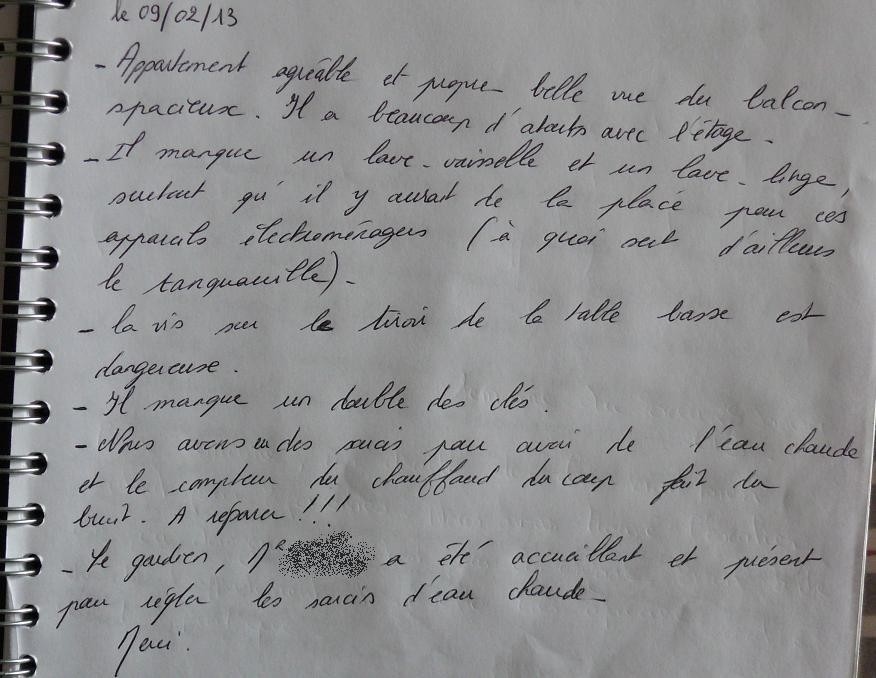 le 09/02/13
- Appartement agréable et propre belle vue du balcon -
spacieux. Il a beaucoup d'atouts avec l'étage -
- Il manque un lave-vaisselle et un lave-linge,
surtout qu'il y aurait de la place pour ces
appareils électroménagers (à quoi sert d'ailleurs
le tanquarville) -
- la vis sur le tiroir de la table basse est
dangereuse.
- Il manque un double des clés.
- Nous avons eu des soucis pour avoir de l'eau chaude
et le compteur du chauffaud du coup fait du
bruit. A réparer !!!
- Le gardien, Mr a été accueillant et présent
pour régler les soucis d'eau chaude -
Merci.